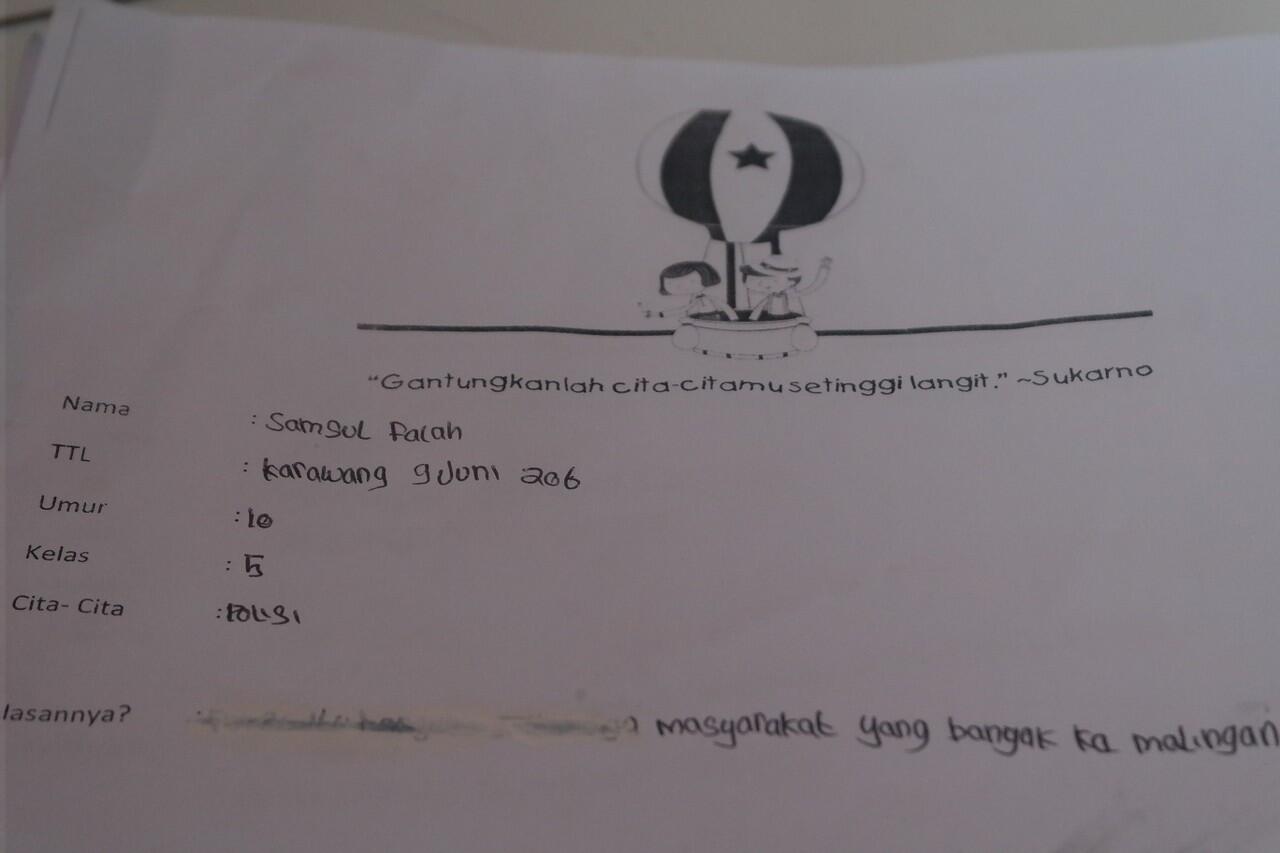 "Gantungkanlah cita-citamu setinggi langit." ~Sukarno
Nama : Samsul Falah
TTL : karawang 9 Juni 206
Umur : 10
Kelas : 5
Cita- Cita : POLISI
lasannya? masyarakat yang bangak ka malingan